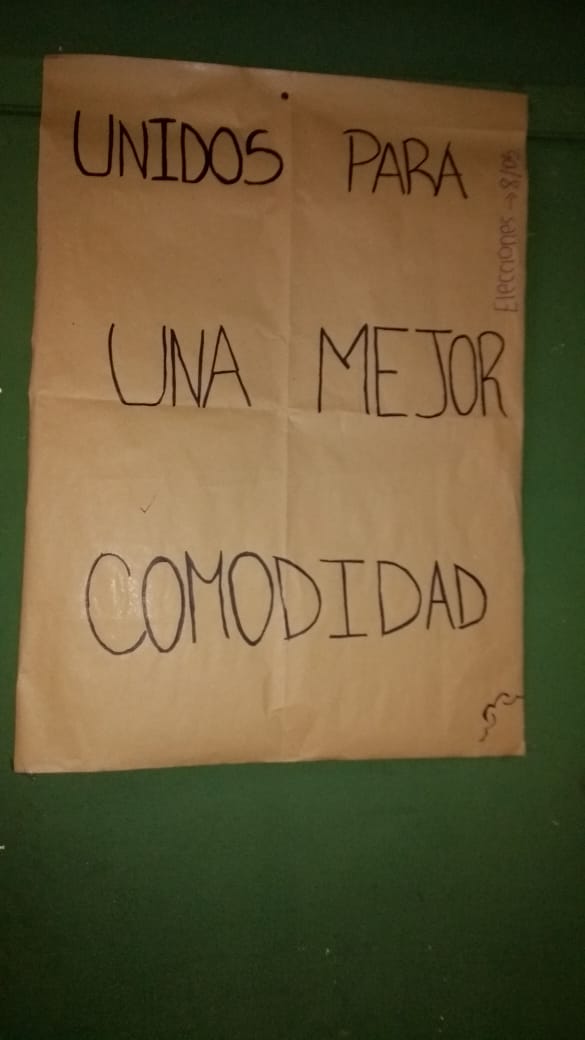 UNIDOS PARA
UNA MEJOR
COMODIDAD
Elecciones → 8/05